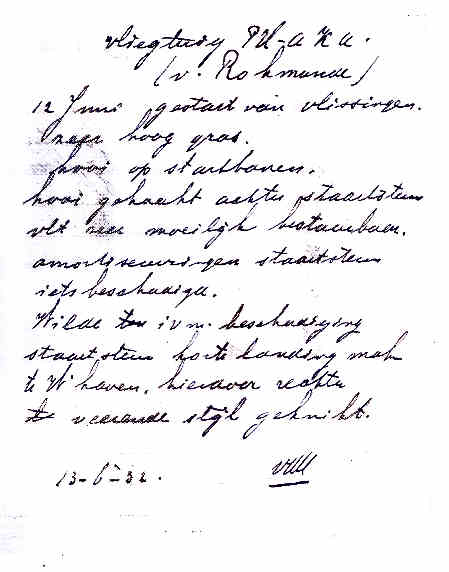 vliegtuig PH-aKa.
(v. Rohmunde)
12 Juni gestart van vlissingen.
zeer hoog gras.
hooi op startbanen.
hooi gehaakt achter staartsteun
vlt zeer moeilijk bestuurbaar.
amortisseurringen staartsteun
iets beschadigd.
Wilde ivm. beschadiging
staartsteun korte landing mak
te W'haven, hierdoor rechter
veerende stijl geknikt.
13-6-32.